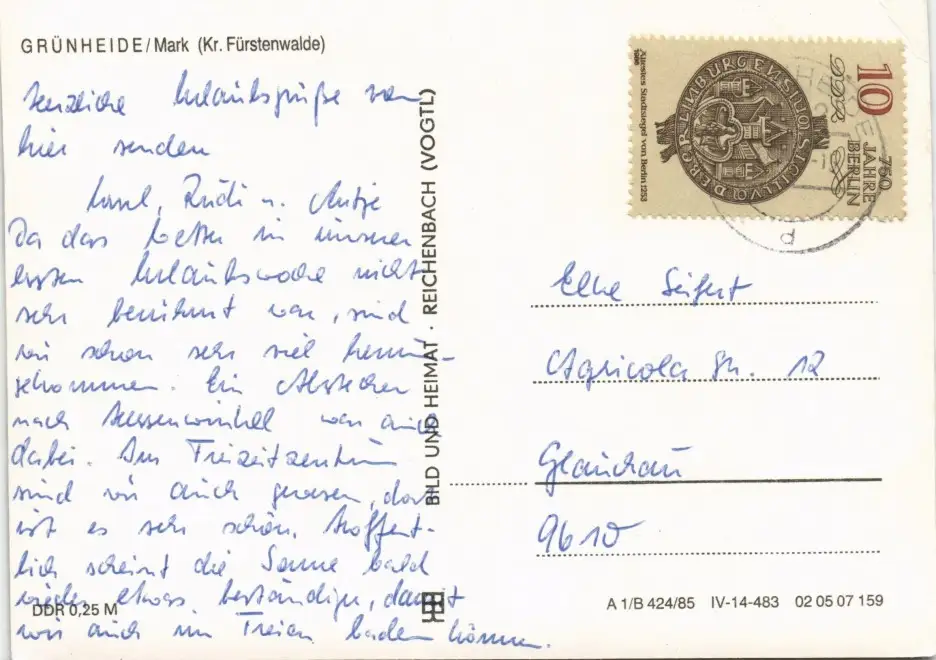 GRÜNHEIDE/Mark (Kr. Fürstenwalde)
Herzliche Urlaubsgrüße von
hier senden
Rudi u. Antje
Da das Wetter in unserer
ersten Urlaubswoche nicht
sehr berühmt war, sind
wir schon sehr viel herum-
gekommen. Ein Abstecher
nach war auch
dabei. Im Freizeitzentrum
sind wir auch gewesen, dort
ist es sehr schön. Hoffent-
lich scheint die Sonne bald
wieder etwas beständiger, damit
wir auch im Freien baden können.
DDR 0,25 M
BILD UND HEIMAT · REICHENBACH (VOGTL)
10
DDR
750
JAHRE
BERLIN
Ältestes Stadtsiegel von Berlin 1253
1986
Elke Seifert
Agricola Str. 12
Glauchau
9610
A 1/B 424/85 IV-14-483 02 05 07 159